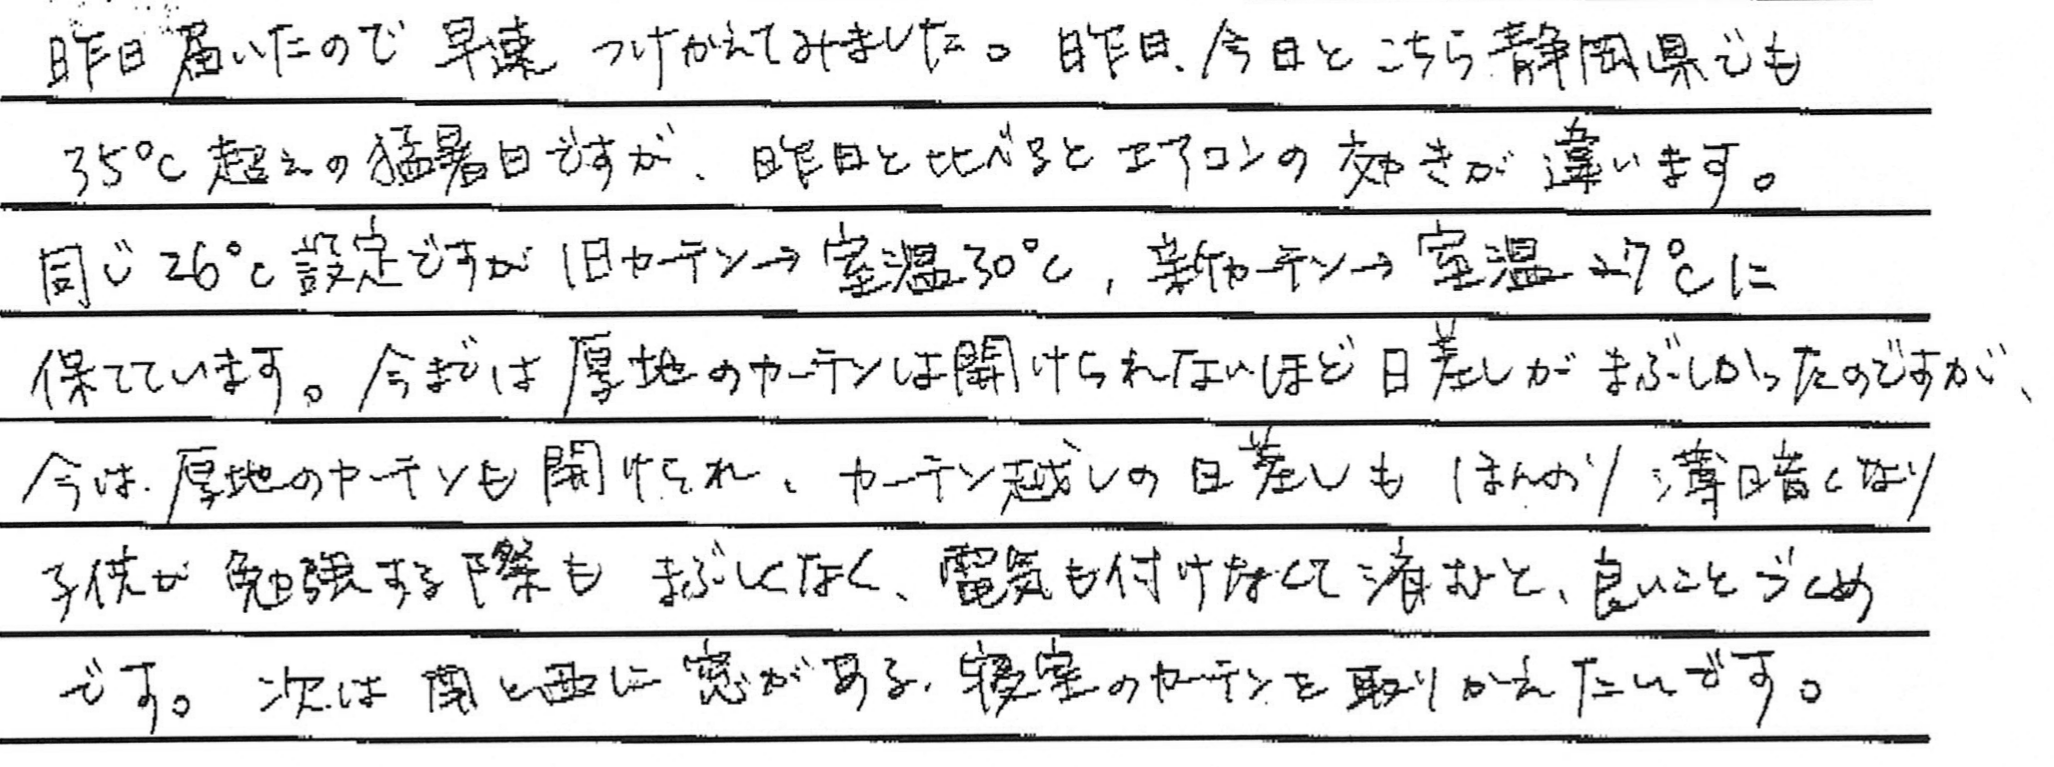 昨日届いたので早速つけかえてみました。昨日、今日とこちら静岡県でも
35℃超えの猛暑日ですが、昨日と比べるとエアコンの効きが違います。
同じ26℃設定ですが旧カーテン→室温30℃,新カーテン→室温27℃に
保てています。今までは厚地のカーテンは開けられないほど日差しがまぶしかったのですが、
今は厚地のカーテンも開けられ、カーテン越しの日差しもほんのり薄暗くなり
子供が勉強する際もまぶしくなく、電気も付けなくて済むと、良いことづくめ
です。次は南と西に窓がある、寝室のカーテンを取りかえたいです。